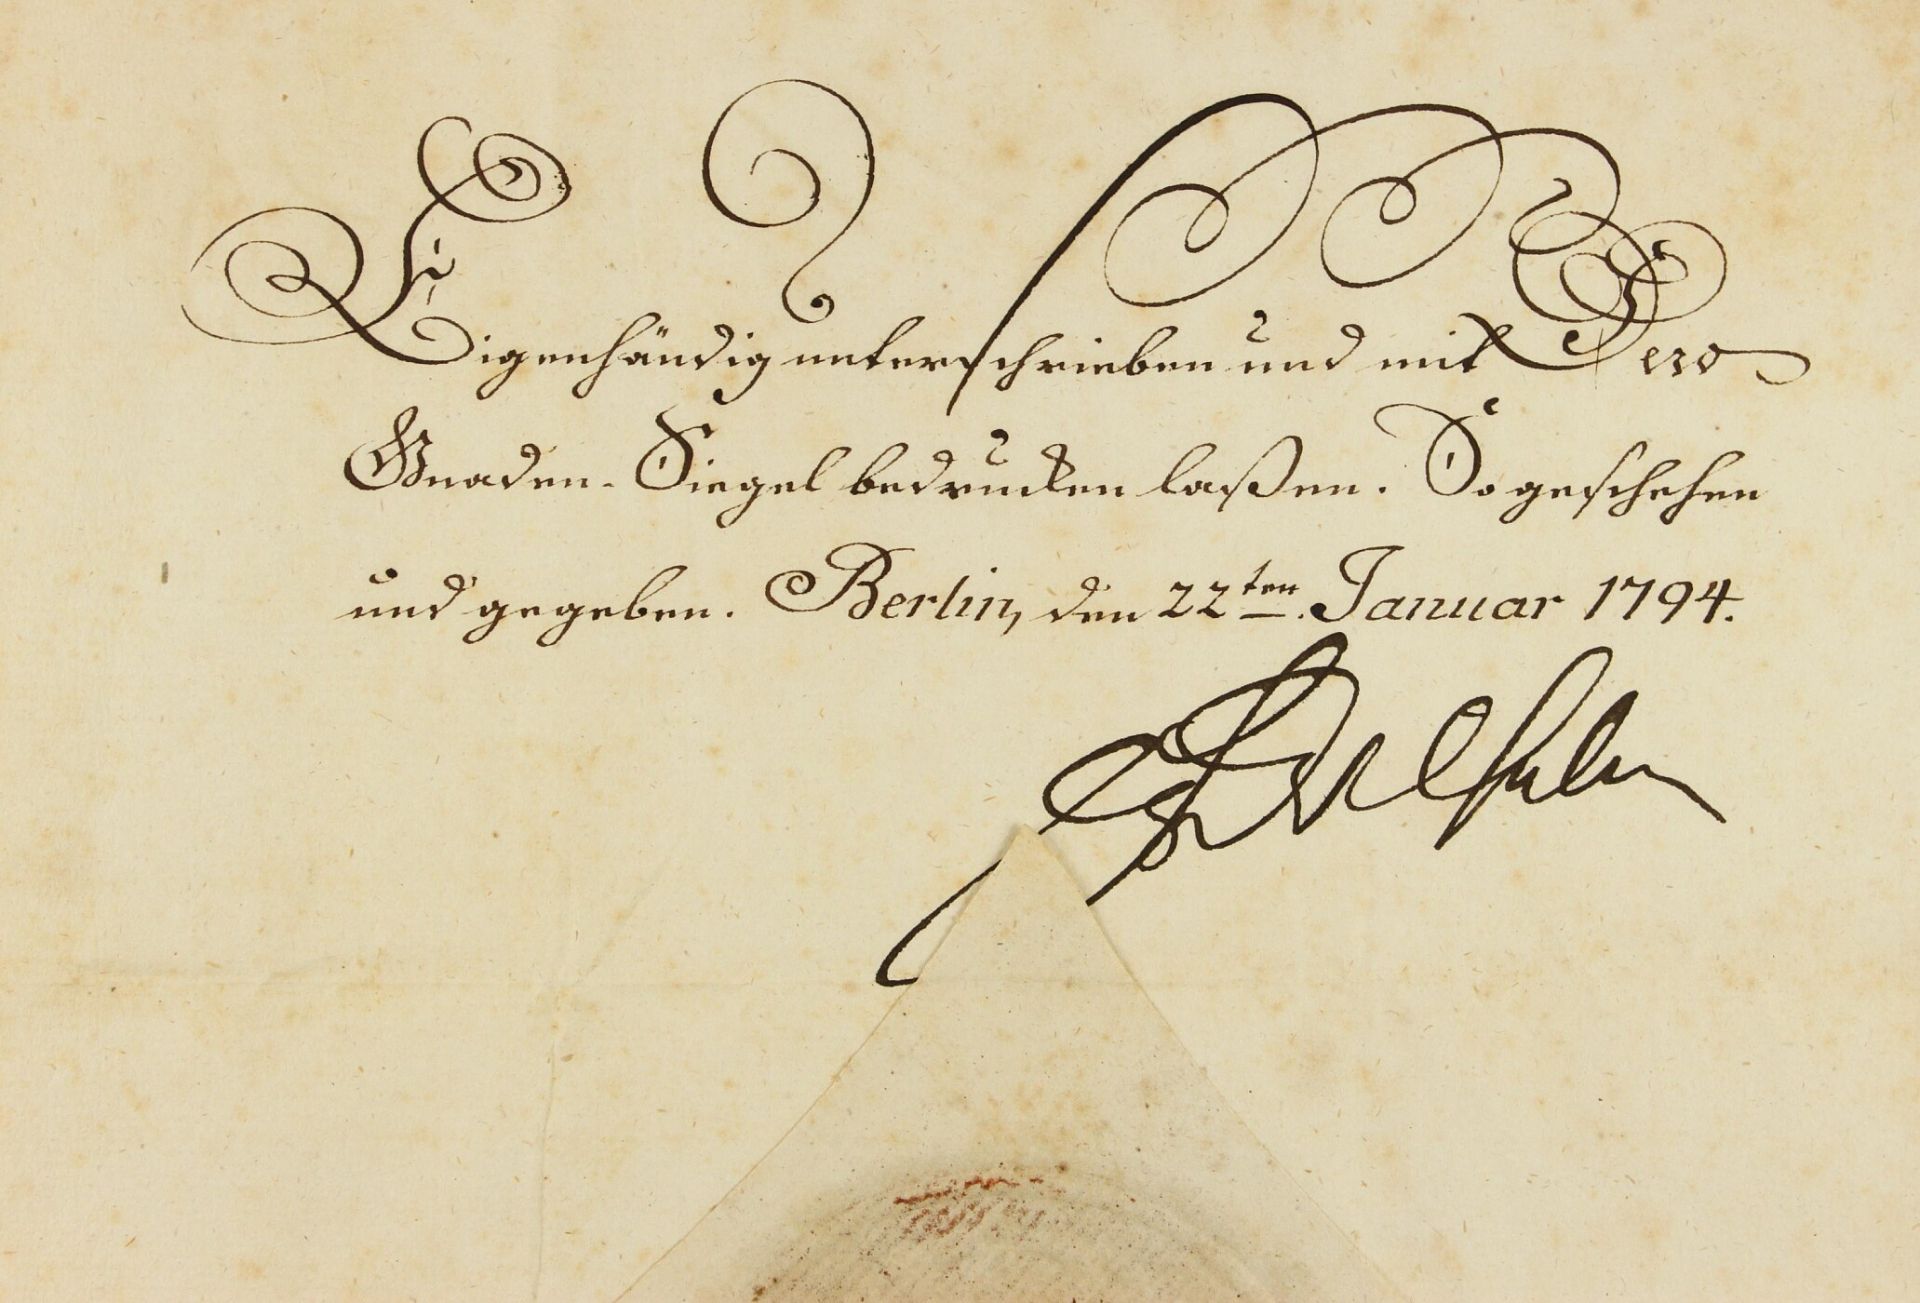 Eigenhändig unterschrieben und mit Dero
Gnaden-Siegel bedrucken laßen. So geschehen
und gegeben. Berlin, den 22ten Januar 1794.
FrWilhelm